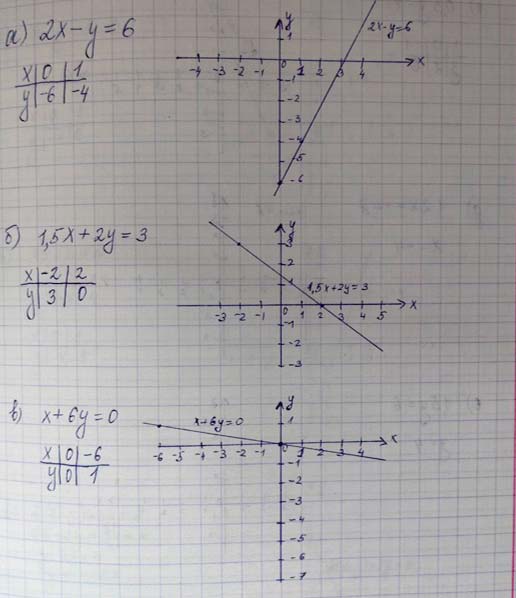 а) 2x-y=6
x 0 1
y -6 -4
y
1
2x-y=6
-4 -3 -2 -1 0 1 2 3 4 x
-1
-2
-3
-4
-5
-6
б) 1,5x+2y=3
x -2 2
y 3 0
y
3
2
1
1,5x+2y=3
-3 -2 -1 0 1 2 3 4 5 x
-1
-2
-3
в) x+6y=0
x 0 -6
y 0 1
y
1
x+6y=0
-6 -5 -4 -3 -2 -1 0 1 2 3 4 x
-1
-2
-3
-4
-5
-6
-7